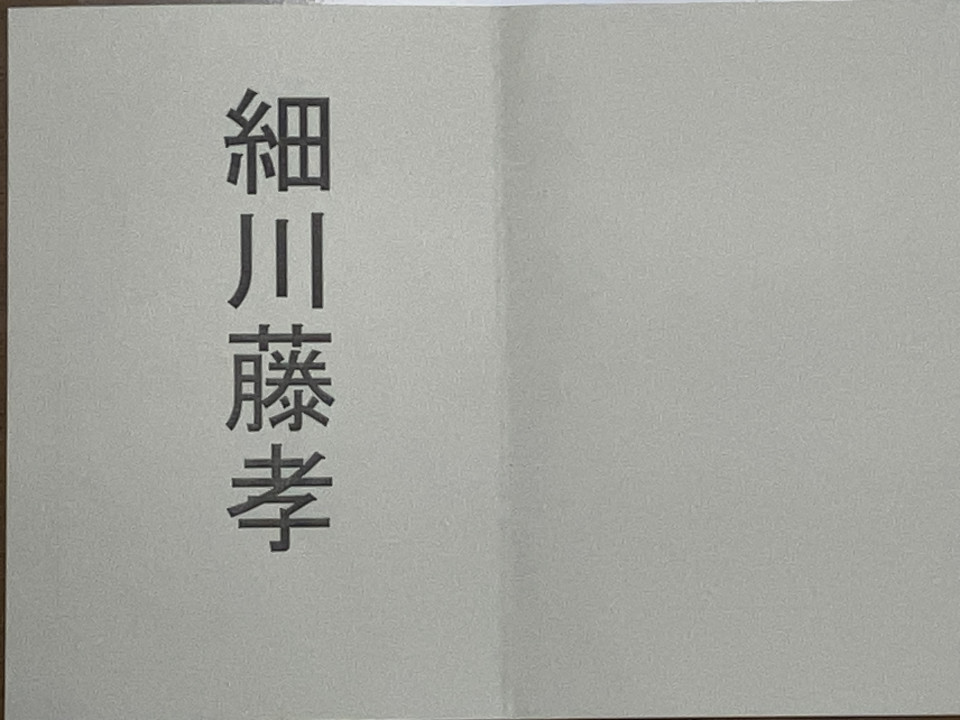 細川藤孝